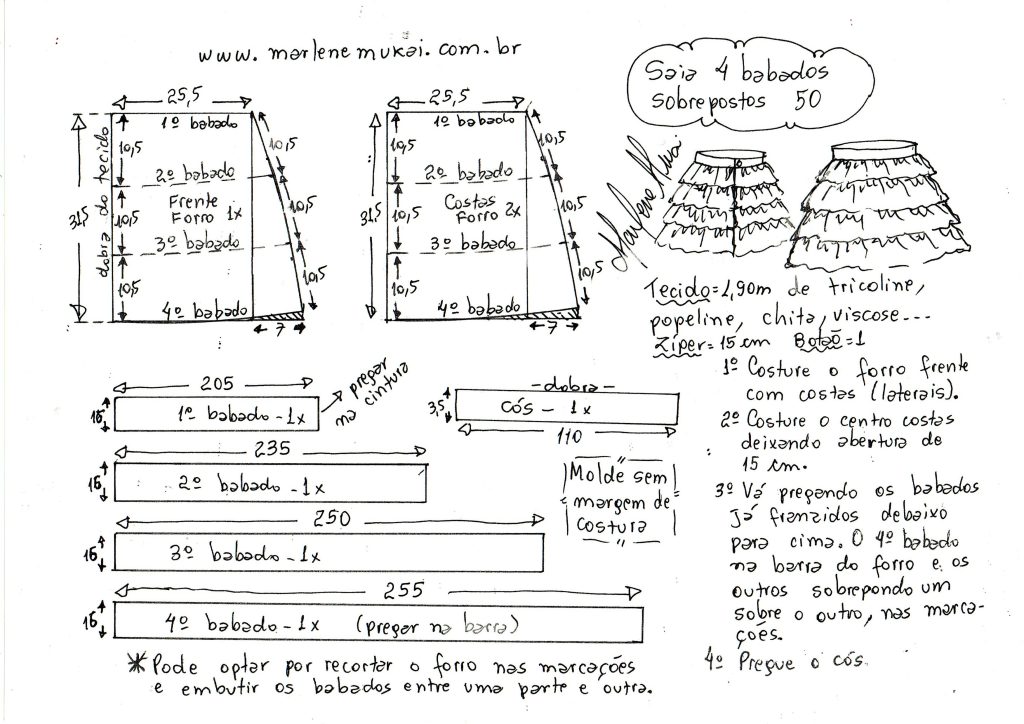 www.marlenemukai.com.br
Saia 4 babados
sobrepostos 50
Marlene Mukai
25,5
1º babado
10,5
10,5
2º babado
dobra do tecido
31,5
Frente
Forro 1x
10,5
10,5
3º babado
10,5
10,5
4º babado
7
25,5
1º babado
10,5
10,5
2º babado
31,5
Costas
Forro 2x
10,5
10,5
3º babado
10,5
10,5
4º babado
7
Tecido=2,90m de tricoline,
popeline, chita, viscose...
Zíper=15cm Botão=1
1º Costure o forro frente
com costas (laterais).
2º Costure o centro costas
deixando abertura de
15 cm.
3º Vá pregando os babados
já franzidos debaixo
para cima. O 4º babado
na barra do forro e os
outros sobrepondo um
sobre o outro, nas marca-
ções.
4º Pregue o cós
205
16
1º babado - 1x
pregar
na cintura
235
16
2º babado - 1x
250
16
3º babado - 1x
255
16
4º babado - 1x (pregar na barra)
- dobra -
3,5
cós - 1x
110
Molde sem
margem de
costura
* Pode optar por recortar o forro nas marcações
e embutir os babados entre uma parte e outra.